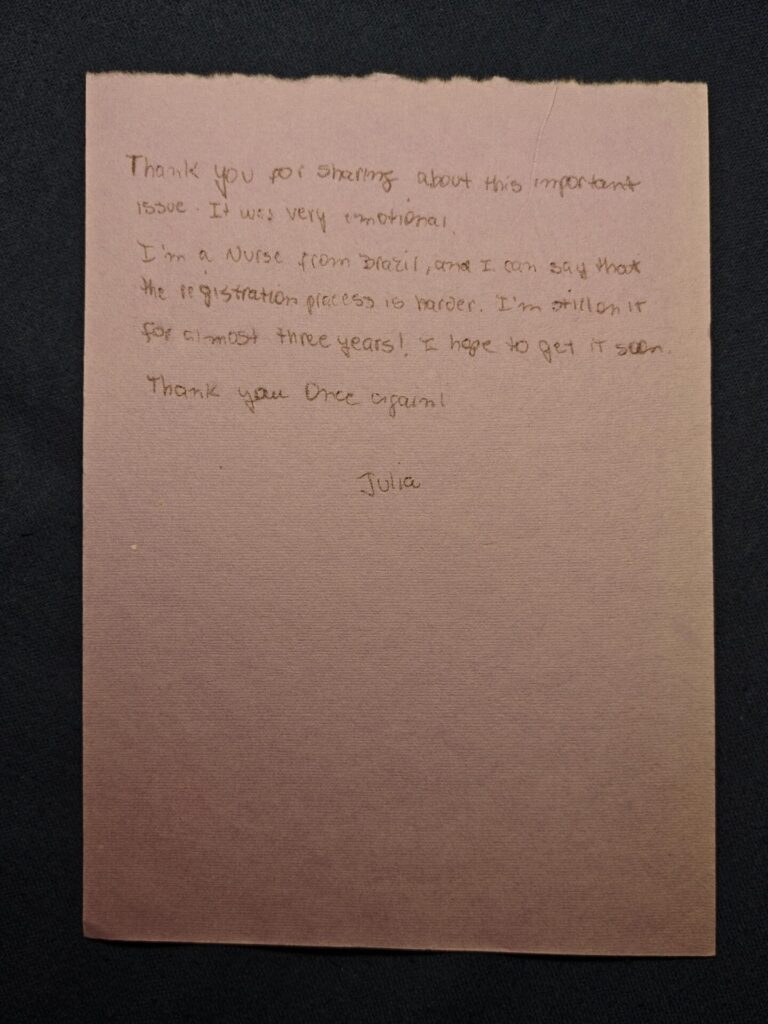 Thank you for sharing about this important
issue. It was very emotional.
I'm a Nurse from Brazil, and I can say that
the registration process is harder. I'm still on it
for almost three years! I hope to get it soon.
Thank you Once again!
Julia